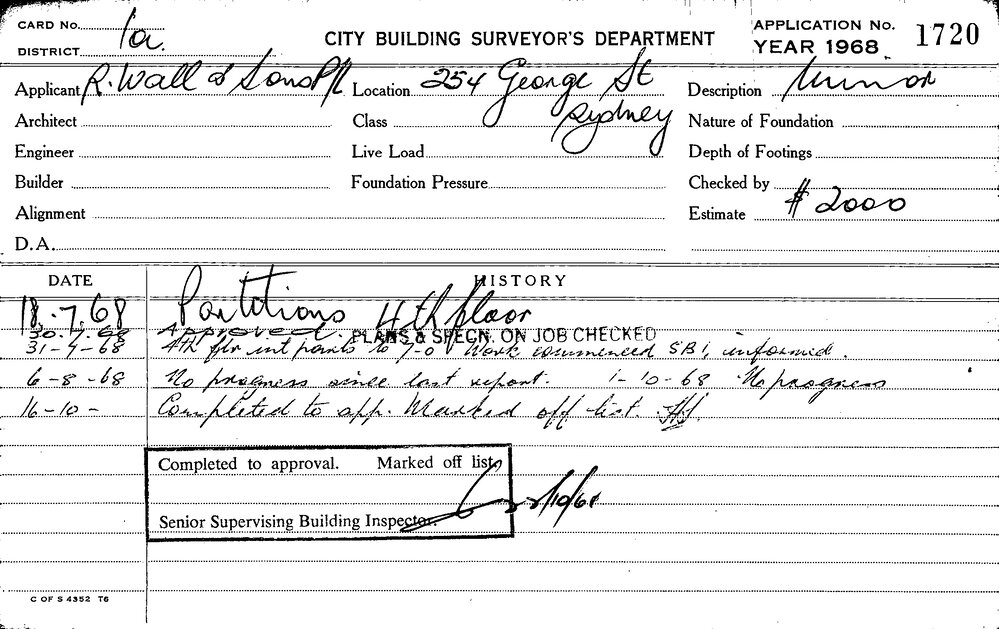 CARD No.
DISTRICT 1a.
CITY BUILDING SURVEYOR'S DEPARTMENT
APPLICATION No. 1720
YEAR 1968
Applicant R. Wall & Sons P/L Location 254 George St Sydney Description Minor
Architect Class Nature of Foundation
Engineer Live Load Depth of Footings
Builder Foundation Pressure Checked by
Alignment Estimate $2000
D.A.
DATE HISTORY
18.7.68 Partitions 4th floor
30.7.68 Approved. PLANS & SPECN. ON JOB CHECKED
31-7-68 4th flr int parts to 7-0 Work commenced SBI, informed.
6-8-68 No progress since last report. 1-10-68 No progress
16-10- Completed to app. Marked off list.
Completed to approval. Marked off list.
Senior Supervising Building Inspector. /10/68
C OF S 4352 T6